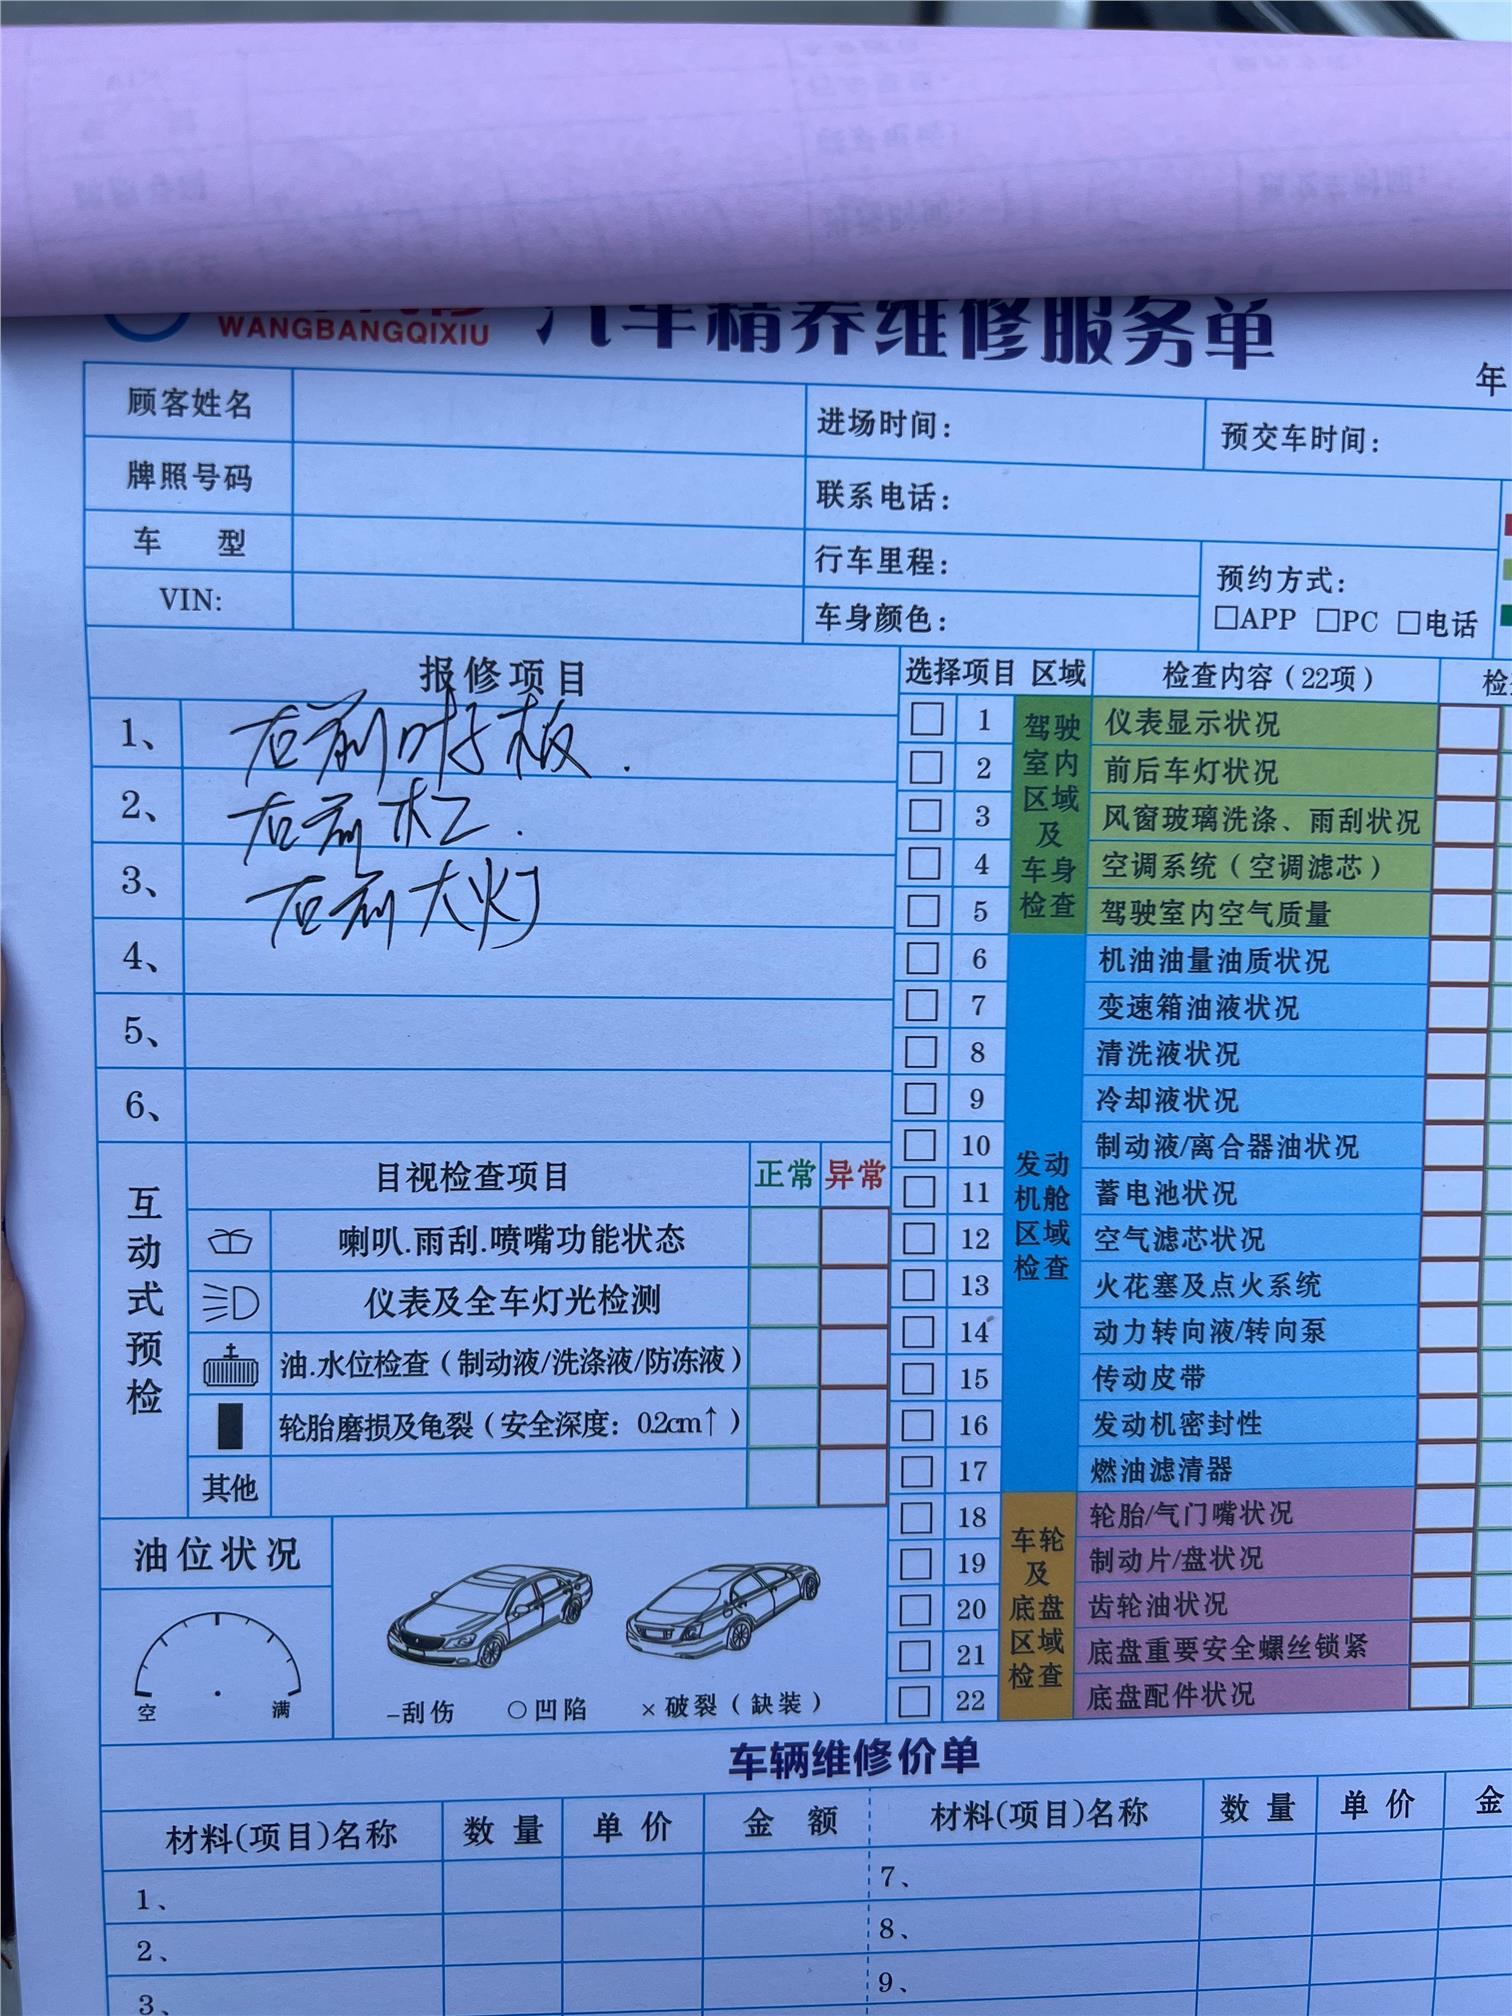 WANGBANGQIXIU
汽车精养维修服务单
年
顾客姓名
进场时间：
预交车时间：
牌照号码
联系电话：
车 型
行车里程：
预约方式：
□APP □PC □电话
VIN:
车身颜色：
报修项目
1、右前叶子板.
2、右前杠.
3、右前大灯
4、
5、
6、
选择项目 区域 检查内容（22项）
驾驶室内区域及车身检查
1 仪表显示状况
2 前后车灯状况
3 风窗玻璃洗涤、雨刮状况
4 空调系统（空调滤芯）
5 驾驶室内空气质量
发动机舱区域检查
6 机油油量油质状况
7 变速箱油液状况
8 清洗液状况
9 冷却液状况
10 制动液/离合器油状况
11 蓄电池状况
12 空气滤芯状况
13 火花塞及点火系统
14 动力转向液/转向泵
15 传动皮带
16 发动机密封性
17 燃油滤清器
车轮及底盘区域检查
18 轮胎/气门嘴状况
19 制动片/盘状况
20 齿轮油状况
21 底盘重要安全螺丝锁紧
22 底盘配件状况
互动式预检
目视检查项目 正常 异常
喇叭.雨刮.喷嘴功能状态
仪表及全车灯光检测
油.水位检查（制动液/洗涤液/防冻液）
轮胎磨损及龟裂（安全深度：0.2cm↑）
其他
油位状况
空 满
–刮伤 ○凹陷 ×破裂（缺装）
车辆维修价单
材料(项目)名称 数量 单价 金额 材料(项目)名称 数量 单价 金
1、 7、
2、 8、
3、 9、